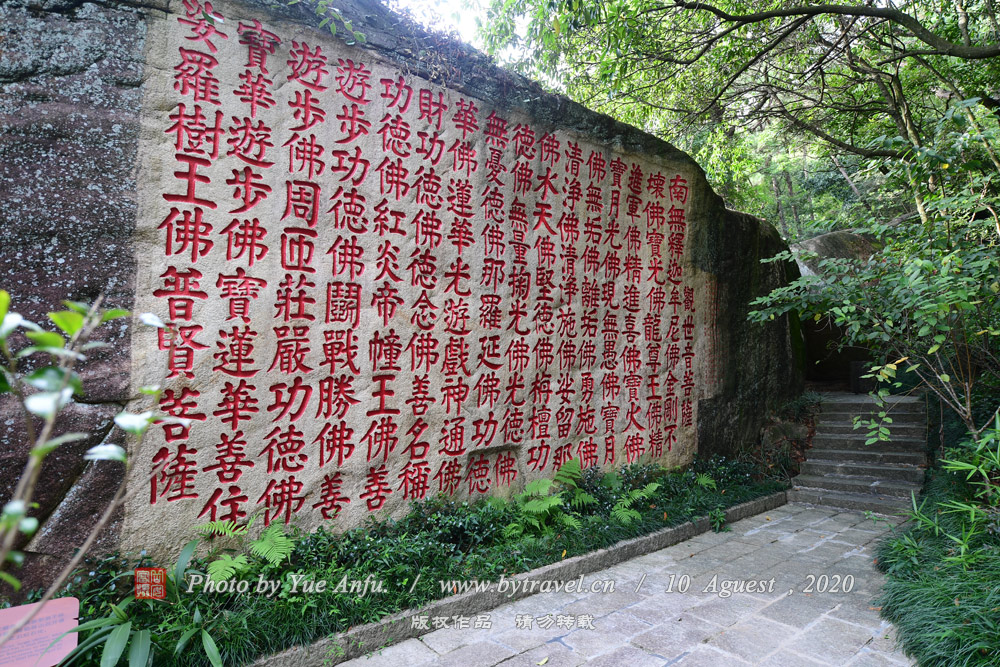 觀世音菩薩
南無釋迦牟尼佛金剛不
壞佛寶光佛龍尊王佛精
進軍佛精進喜佛寶火佛
寶月光佛現無愚佛寶月
佛無垢佛離垢佛勇施佛
清淨佛清淨施佛娑留那
佛水天佛堅德佛栴檀功
德佛無量掬光佛光德佛
無憂德佛那羅延佛功德
華佛蓮華光遊戲神通佛
財功德佛德念佛善名稱
功德佛紅炎帝幢王佛善
遊步功德佛鬭戰勝佛善
遊步佛周匝莊嚴功德佛
寶華遊步佛寶蓮華善住
娑羅樹王佛普賢菩薩
Photo by Yue Anfu. / www.bytravel.cn / 10 Aguest , 2020
版权作品 请勿转载